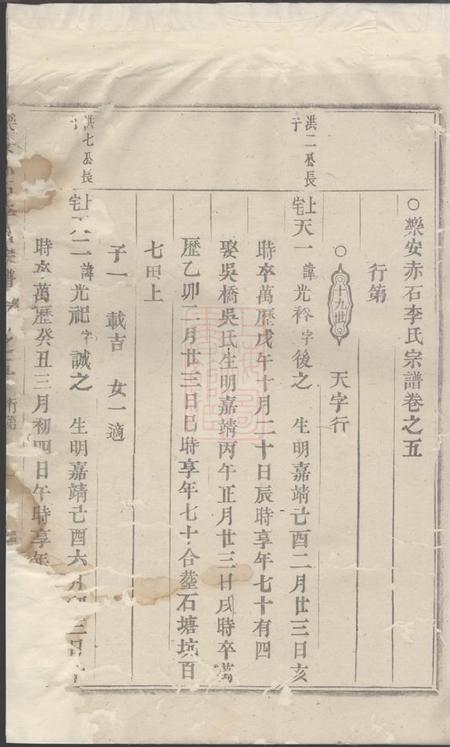 ○樂安赤石李氏宗譜卷之五
行第
○十九世 天字行
洪二公長子
上宅天一 諱光裕字後之 生明嘉靖己酉二月廿三日亥
時卒萬歷戊午十月二十日辰時享年七十有四
娶吳橋吳氏生明嘉靖丙午正月廿三日戌時卒萬
歷乙卯二月廿三日巳時享年七十合葬石塘坑百
七田上
子一 載吉 女一適
洪七公長
上宅天二 諱光祀字誠之 生明嘉靖己酉六月
時卒萬歷癸丑三月初四日午時享年